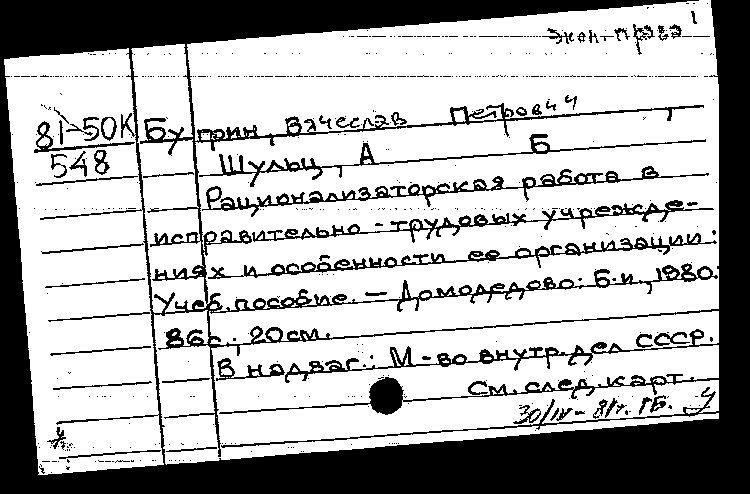 1
Экон. права
81-50К Бугрин, Вячеслав Петрович,
548 Шульц, А Б
Рационализаторская работа в
исправительно-трудовых учрежде-
ниях и особенности ее организации:
Учеб. пособие. — Домодедово: Б.и., 1980.
86с.; 20см.
В надзаг.: М-во внутр. дел СССР.
См. след. карт.
30/IV-81г. ГБ. У